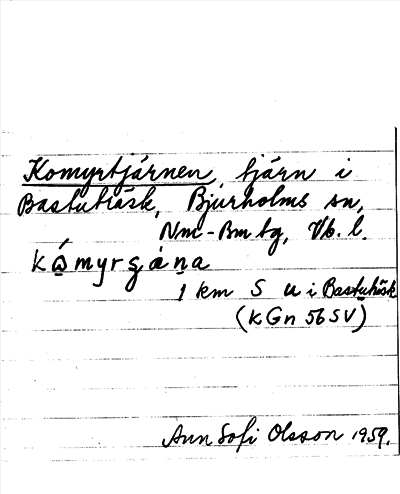 Komyrtjärnen, tjärn i
Bastuträsk, Bjurholms sn,
Nm-Bm tg, Vb. l.
1 km S u i Bastuträsk
(KGn 56 SV)
Ann Sofi Olsson 1959.